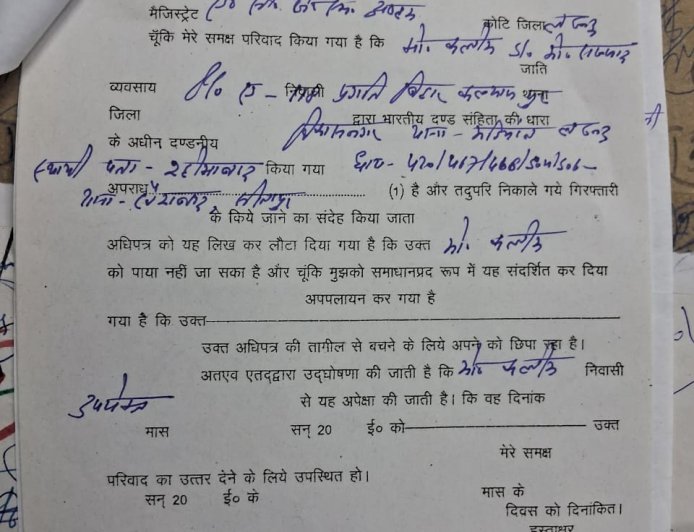 मैजिस्ट्रेट कोटि जिला लखनऊ
चूँकि मेरे समक्ष परिवाद किया गया है कि मो. कलीम S/o मो.
जाति
व्यवसाय R/o ए- निवासी प्रगति विहार कल्याण
जिला द्वारा भारतीय दण्ड संहिता की धारा
के अधीन दण्डनीय थाना - लखनऊ
स्थायी पता - रहीमाबाद किया गया धारा- 420/467/468/504/506
अपराध (1) है और तदुपरि निकाले गये गिरफ्तारी
थाना -
के किये जाने का संदेह किया जाता
अधिपत्र को यह लिख कर लौटा दिया गया है कि उक्त मो. कलीम
को पाया नहीं जा सका है और चूंकि मुझको समाधानप्रद रूप में यह संदर्शित कर दिया
अपपलायन कर गया है
गया है कि उक्त
उक्त अधिपत्र की तागील से बचने के लिये अपने को छिपा रहा है।
अतएव एतद्द्वारा उद्घोषणा की जाती है कि मो0 कलीम निवासी
उपरोक्त से यह अपेक्षा की जाती है। कि वह दिनांक
मास सन् 20 ई० को उक्त
मेरे समक्ष
परिवाद का उत्तर देने के लिये उपस्थित हो।
सन् 20 ई० के मास के
दिवस को दिनांकित।
हस्ताक्षर